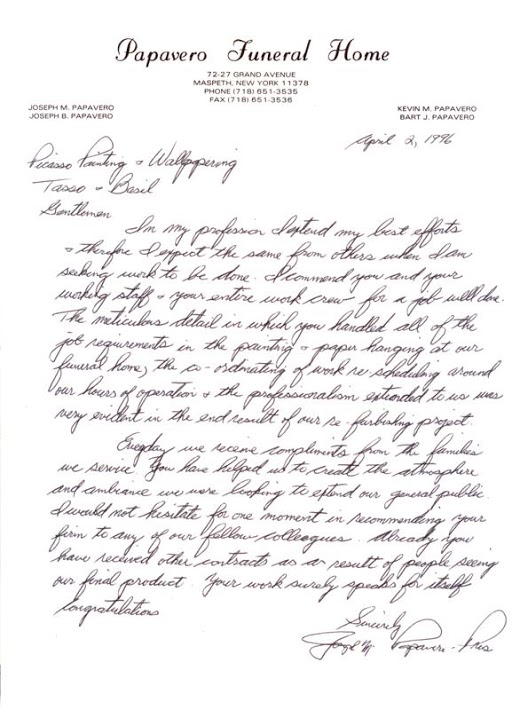 Papavero Funeral Home
72-27 GRAND AVENUE
MASPETH, NEW YORK 11378
PHONE (718) 651-3535
FAX (718) 651-3536
JOSEPH M. PAPAVERO
JOSEPH B. PAPAVERO
KEVIN M. PAPAVERO
BART J. PAPAVERO
April 2, 1996
Picasso Painting & Wallpapering
Tasso & Basil
Gentlemen
In my profession I extend my best efforts
& therefore I expect the same from others when I am
seeking work to be done. I commend you and your
working staff & your entire work crew for a job well done.
The meticulous detail in which you handled all of the
job requirements in the painting & paper hanging at our
funeral home, the co-ordinating of work re-scheduling around
our hours of operation & the professionalism extended to us was
very evident in the end result of our re-furbishing project.
Everyday we receive compliments from the families
we service. You have helped us to create the atmosphere
and ambiance we were looking to extend our general public.
I would not hesitate for one moment in recommending your
firm to any of our fellow colleagues. Already you
have received other contracts as a result of people seeing
our final product. Your work surely speaks for itself
Congratulations
Sincerely
Joseph M. Papavero - Pres